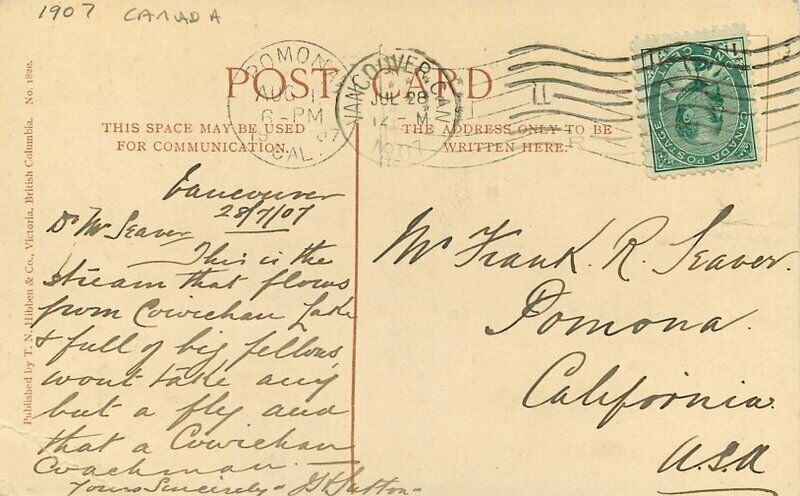 1907 CANADA
POST CARD
THIS SPACE MAY BE USED
FOR COMMUNICATION.
THE ADDRESS ONLY TO BE
WRITTEN HERE.
POMONA
AUG 1
6-PM
1907
CAL.
VANCOUVER, CAN
JUL 28
12-M
1907
CANADA POSTAGE
ONE CENT
Published by T. N. Hibben & Co., Victoria, British Columbia. No. 1820.
Vancouver
28/7/07
Dr Mr Seaver
This is the
stream that flows
from Cowichan Lake
& full of big fellows,
wont take any
but a fly and
that a Cowichan
Coachman.
Yours Sincerely
Sutton
Mr Frank. R. Seaver.
Pomona.
California.
U.S.A